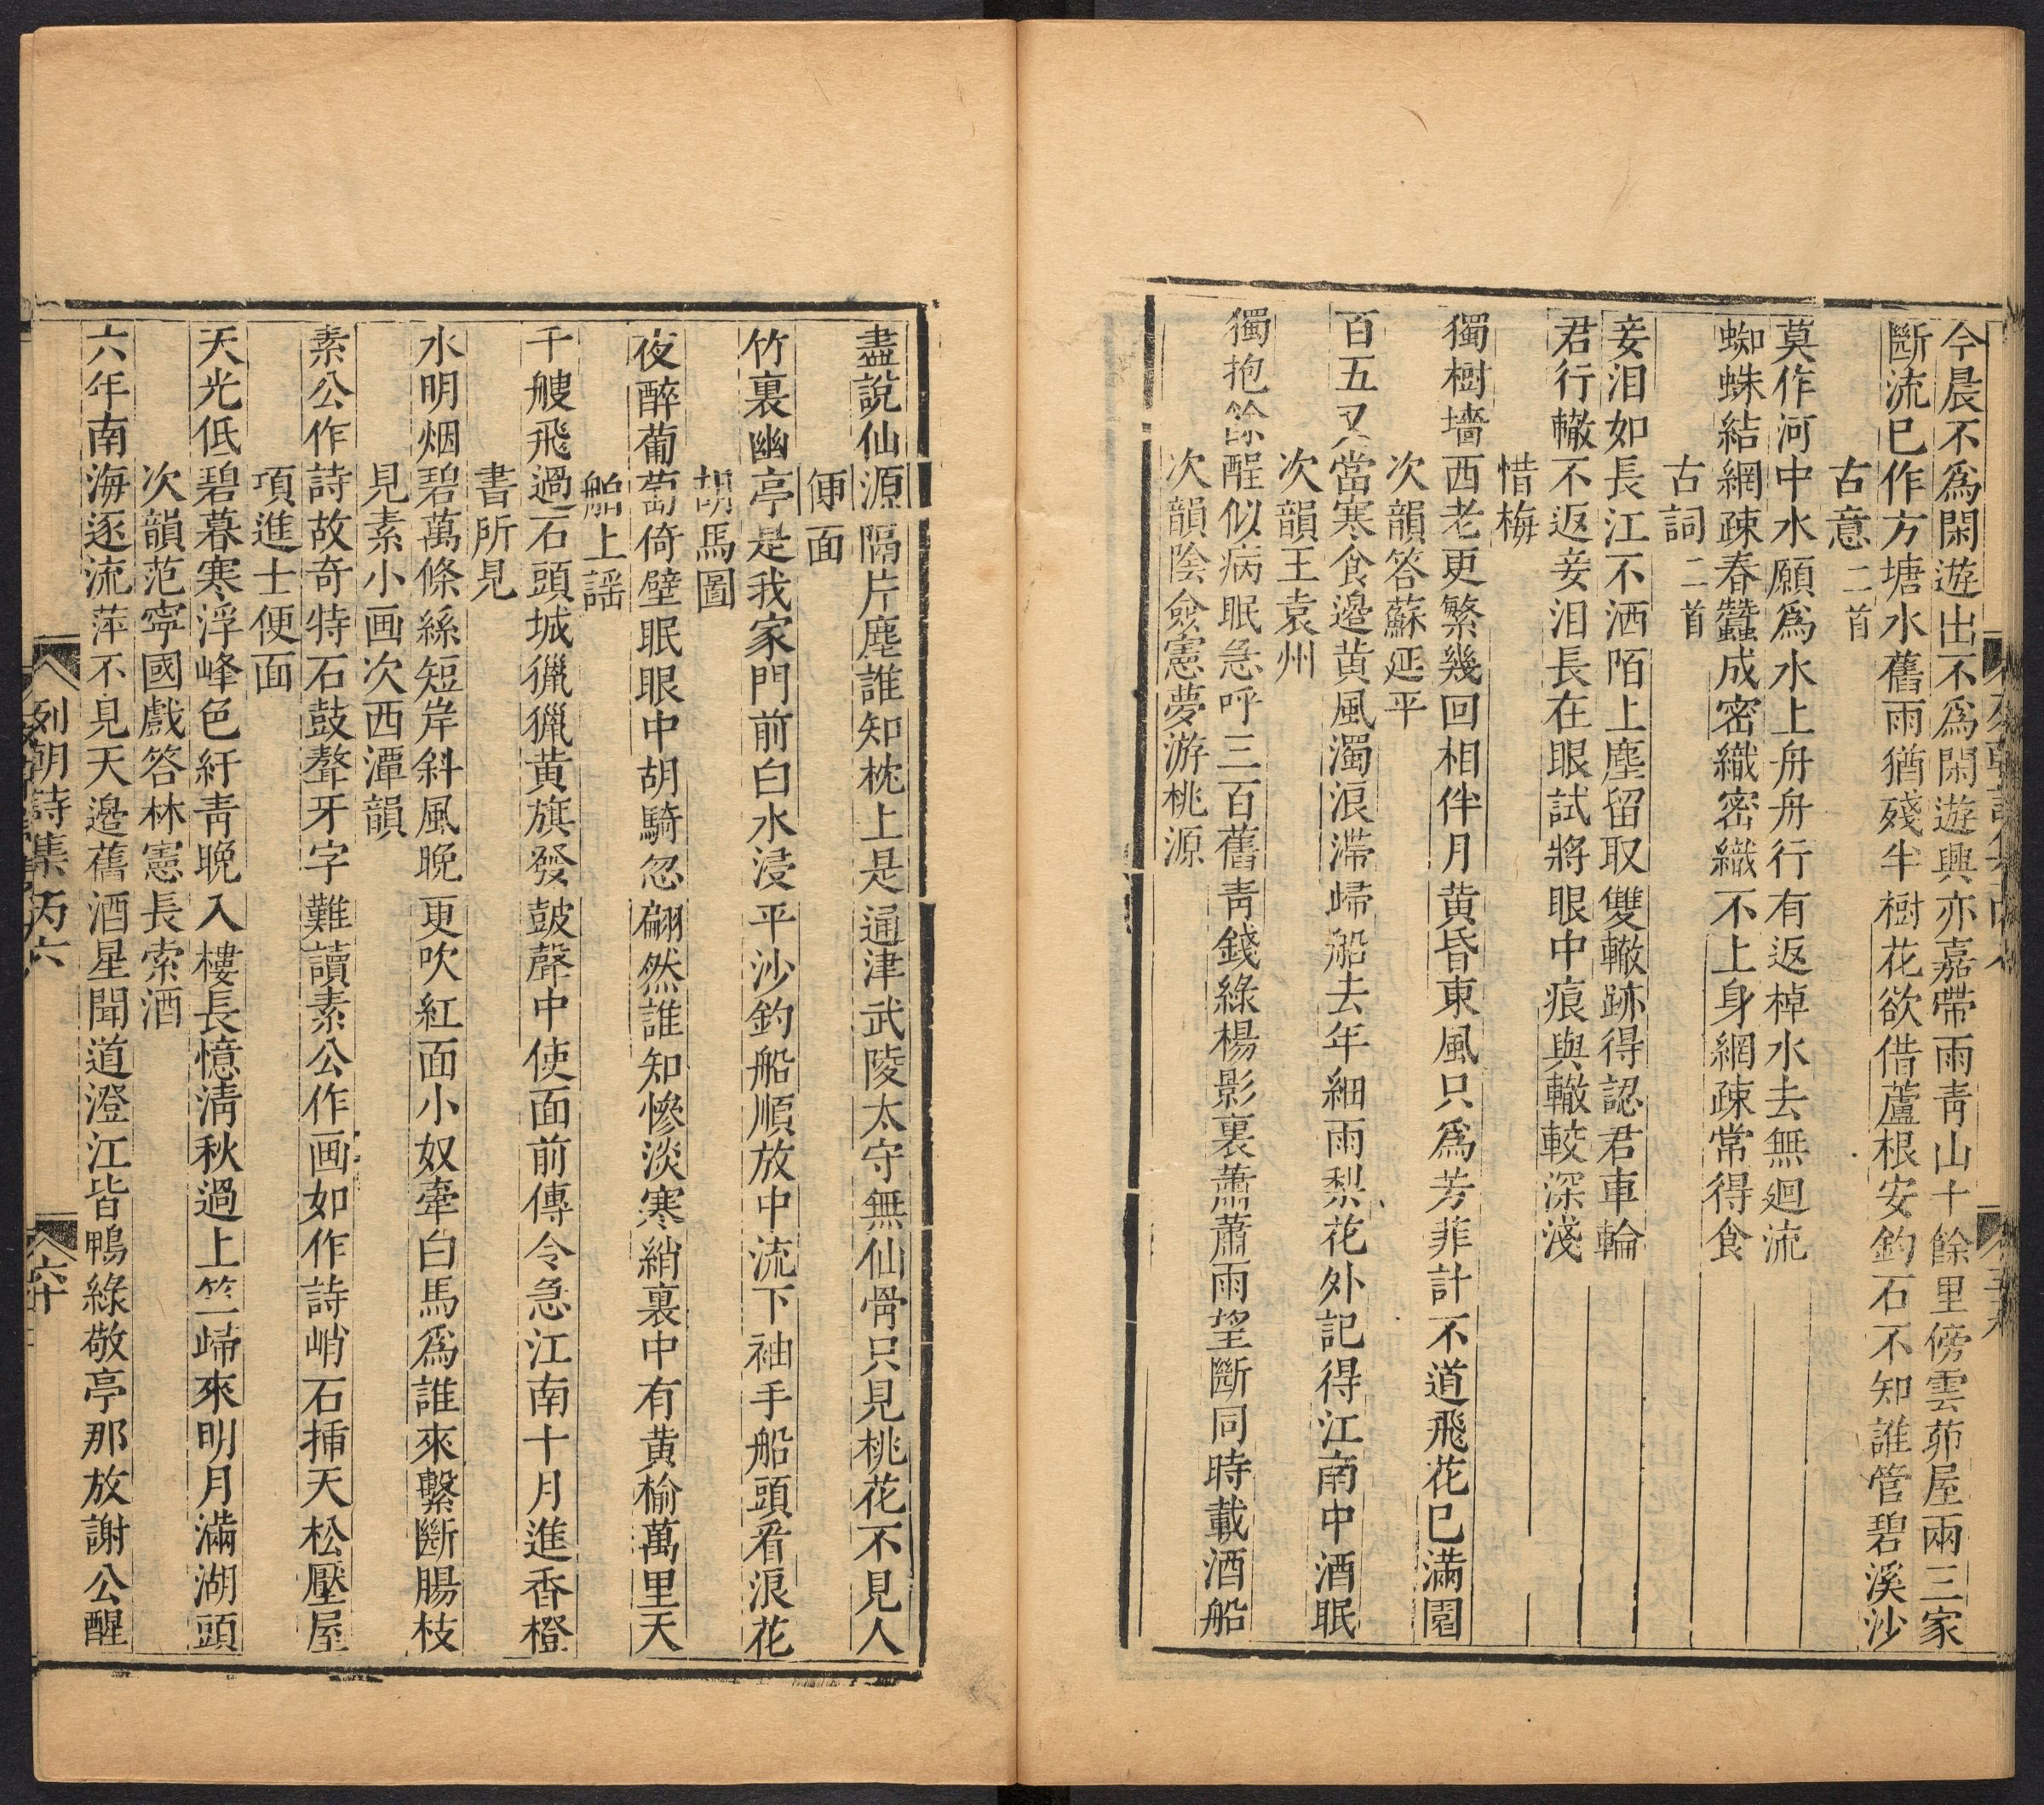 今晨不爲閑遊出不爲閑遊興亦嘉帶雨靑山十餘里傍雲茆屋兩三家
斷流已作方塘水舊雨猶殘半樹花欲借蘆根安釣石不知誰管碧溪沙
古意二首
莫作河中水願爲水上舟舟行有返棹水去無迴流
蜘蛛結網疎春蠶成密織密織不上身網疎常得食
古詞二首
妾泪如長江不洒陌上塵留取雙轍跡得認君車輪
君行轍不返妾泪長在眼試將眼中痕與轍較深淺
惜梅
獨樹墻西老更繁幾回相伴月黄昏東風只爲芳菲計不道飛花已滿園
次韻答蘇延平
百五又當寒食邊黄風濁浪滯歸船去年細雨梨花外記得江南中酒眠
次韻王袁州
獨抱餘酲似病眠急呼三百舊靑錢綠楊影裏蕭蕭雨望斷同時載酒船
次韻陰僉憲夢游桃源
盡說仙源隔片塵誰知枕上是通津武陵太守無仙骨只見桃花不見人
便面
竹裏幽亭是我家門前白水浸平沙釣船順放中流下袖手船頭看浪花
胡馬圖
夜醉葡萄倚壁眠眼中胡騎忽翩然誰知慘淡寒綃裏中有黄榆萬里天
船上謡
千艘飛過石頭城獵獵黄旗發皷聲中使面前傳令急江南十月進香橙
書所見
水明烟碧萬條絲短岸斜風晚更吹紅面小奴牽白馬爲誰來繫斷腸枝
見素小画次西潭韻
素公作詩故奇特石鼓聱牙字難讀素公作画如作詩峭石揷天松壓屋
項進士便面
天光低碧暮寒浮峰色紆靑晚入樓長憶淸秋過上竺歸來明月滿湖頭
次韻范寧國戲答林憲長索酒
六年南海逐流萍不見天邊舊酒星聞道澄江皆鴨綠敬亭那放謝公醒
列朝詩集丙六
六十